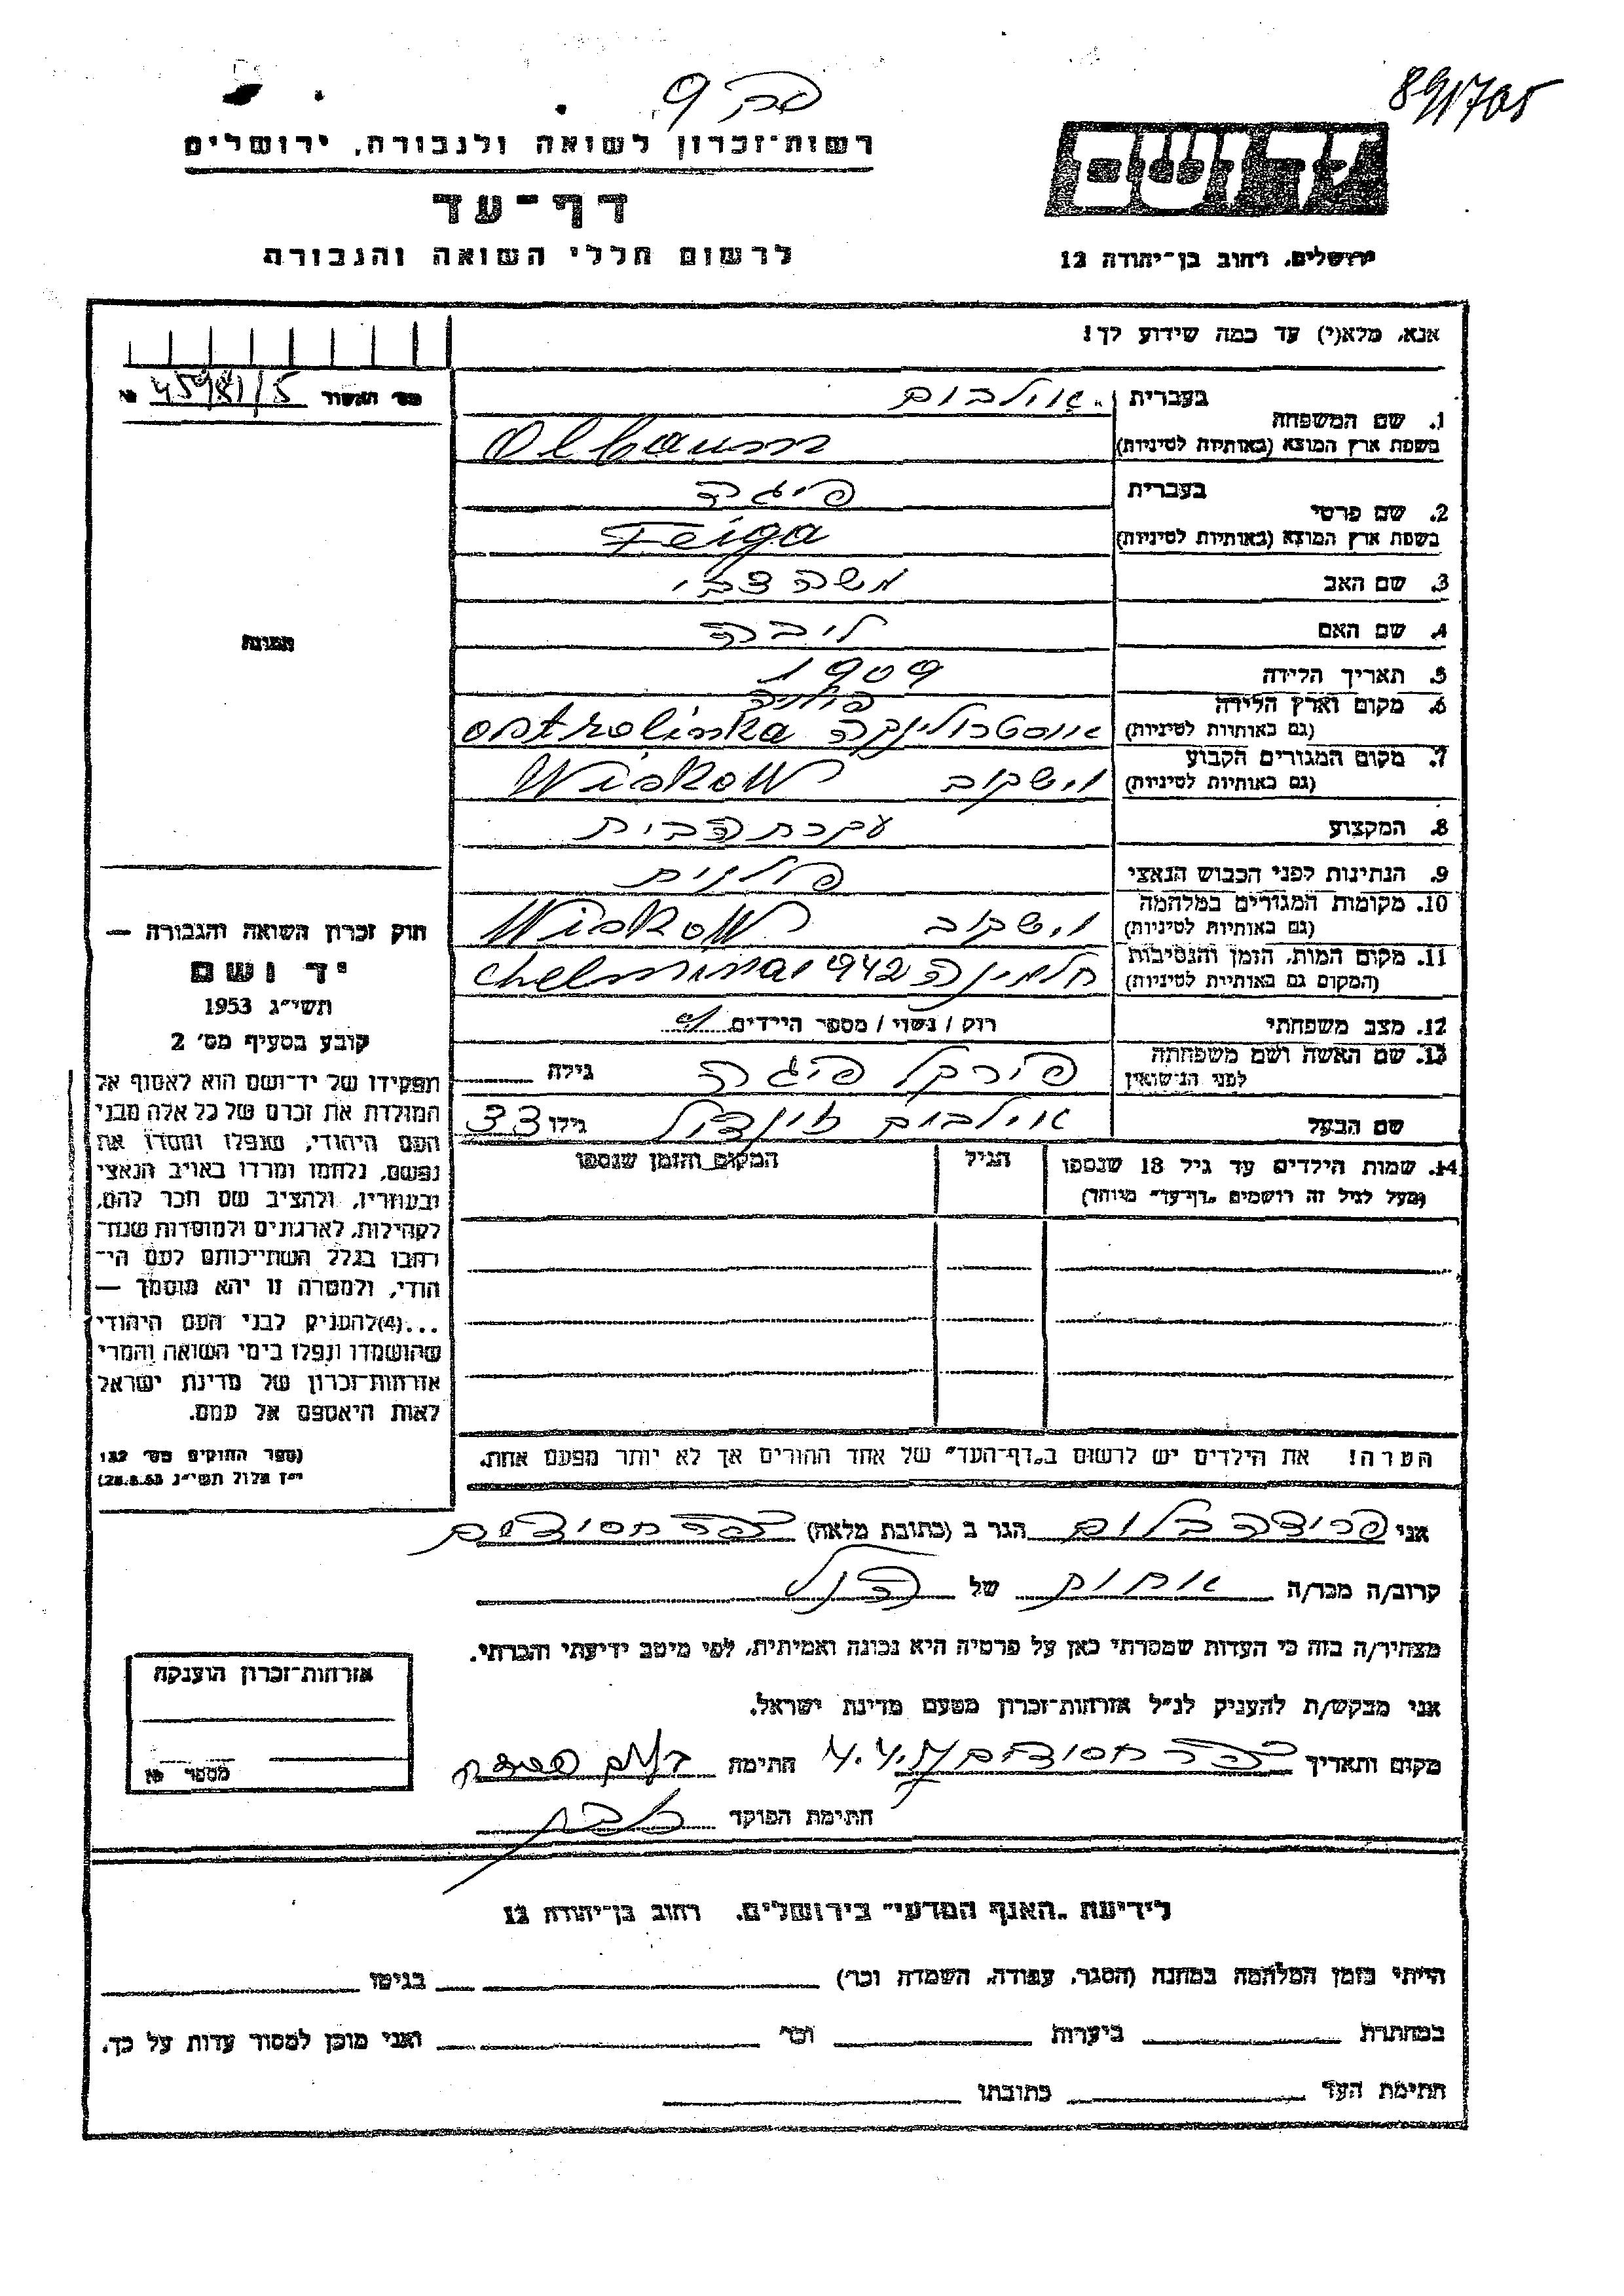 891705
פה 9
רשות-זכרון לשואה ולגבורה, ירושלים
דף-עד
לרשום חללי השואה והגבורה
ירושלים, רחוב בן-יהודה 12
אנא, מלא(י) עד כמה שידוע לך!
מס' האשור
1. שם המשפחה
בעברית אולבום
בשפת ארץ המוצא (באותיות לטיניות) Olbaum
2. שם פרטי
בעברית פיגה
בשפת ארץ המוצא (באותיות לטיניות) Feiga
3. שם האב משה צבי
4. שם האם ליבה
5. תאריך הלידה 1909
6. מקום וארץ הלידה פולניה
(גם באותיות לטיניות) אוסטרולינקה ostrolinka
7. מקום המגורים הקבוע
(גם באותיות לטיניות) וישקוב Wiskow
8. המקצוע עקרת הבית
9. הנתינות לפני הכבוש הנאצי פולנית
10. מקומות המגורים במלחמה
(גם באותיות לטיניות) וישקוב Wiskow
11. מקום המות, הזמן והנסיבות
(המקום גם באותיות לטיניות) חלמינה 1942 Chelmina
12. מצב משפחתי רוק / נשוי / מספר הילדים
13. שם האשה ושם משפחתה
לפני הנישואין פירקל פיגה גילה
שם הבעל אולבום זינדל גילו 33
14. שמות הילדים עד גיל 18 שנספו הגיל המקום והזמן שנספו
(מעל לגיל זה רושמים "דף-עד" מיוחד)
הערה! את הילדים יש לרשום ב"דף-העד" של אחד ההורים אך לא יותר מפעם אחת.
תמונה
חוק זכרון השואה והגבורה —
יד ושם
תשי"ג 1953
קובע בסעיף מס' 2
תפקידו של יד-ושם הוא לאסוף אל
המולדת את זכרם של כל אלה מבני
העם היהודי, שנפלו ומסרו את
נפשם, נלחמו ומרדו באויב הנאצי
ובעוזריו, ולהציב שם וזכר להם,
לקהילות, לארגונים ולמוסדות שנח-
רבו בגלל השתייכותם לעם הי-
הודי, ולמטרה זו יהא מוסמך —
...(4)להעניק לבני העם היהודי
שהושמדו ונפלו בימי השואה והמרי
אזרחות-זכרון של מדינת ישראל
לאות היאספם אל עמם.
(ספר החוקים מס' 132
י"ז אלול תשי"ג 28.8.53)
אני פרידה בלום הגר ב (כתובת מלאה) כפר חסידים
קרוב/ה מכר/ה אחות של הנ"ל
מצהיר/ה בזה כי העדות שמסרתי כאן על פרטיה היא נכונה ואמיתית, לפי מיטב ידיעתי והכרתי.
אני מבקש/ת להעניק לנ"ל אזרחות-זכרון מטעם מדינת ישראל.
מקום ותאריך כפר חסידים חתימה
חתימת הפוקד
אזרחות-זכרון הוענקה
מספר
לידיעת "האגף המדעי" בירושלים, רחוב בן-יהודה 12
הייתי בזמן המלחמה במחנה (הסגר, עבודה, השמדה וכר') בגיטו
במחתרת ביערות וכר' ואני מוכן למסור עדות על כך.
חתימת העד כתובתו